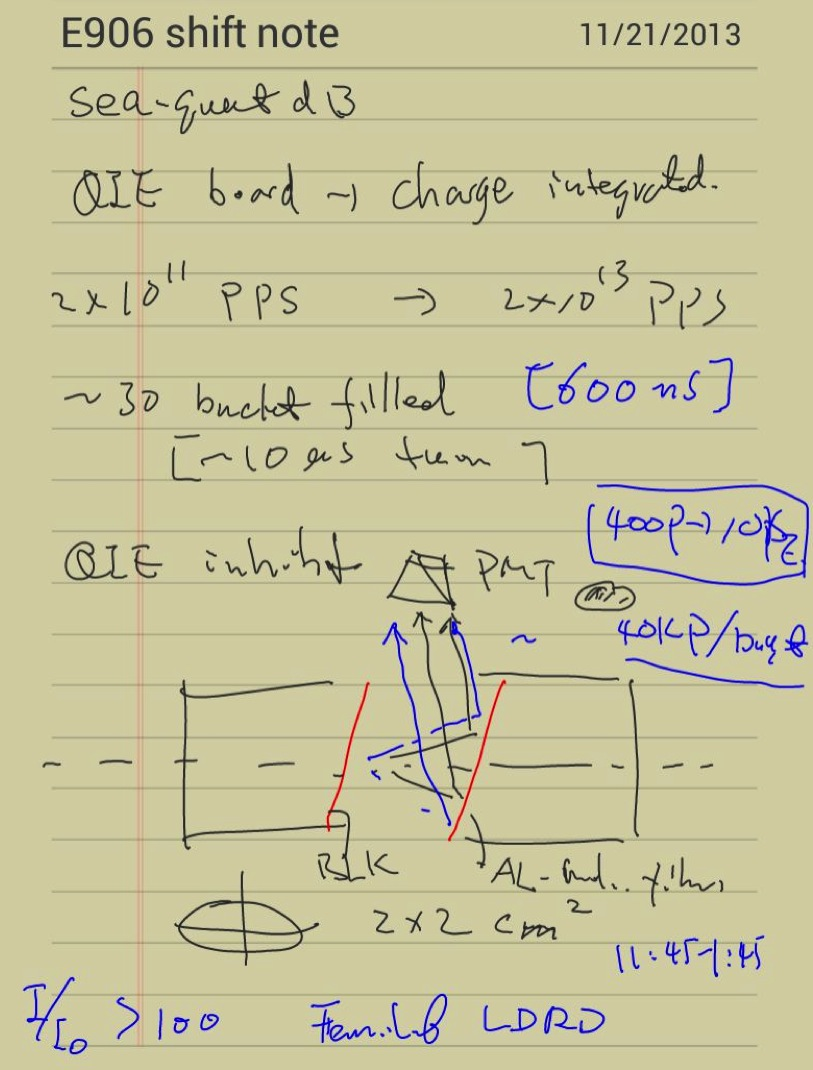 E906 shift note 11/21/2013
Sea-quest dB
QIE board → charge integrated.
2×10¹¹ PPS → 2×10¹³ PPS
~30 bucket filled [600 ns]
[~10 μs turn]
400P→10K
QIE inhibit PMT
~ 40KP/
BLK AL-
2×2 cm²
11:45-1:45
I/I₀ >100 Fermilab LDRD